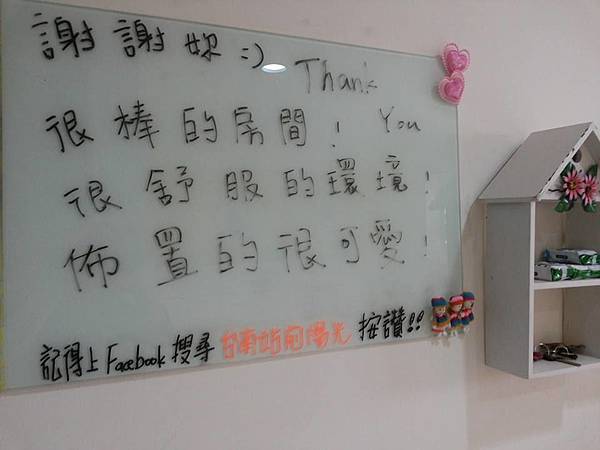 謝謝妳 :)
Thank
You
很棒的房間!
很舒服的環境!
佈置的很可愛!
記得上Facebook搜尋台南站前陽光按讚!!